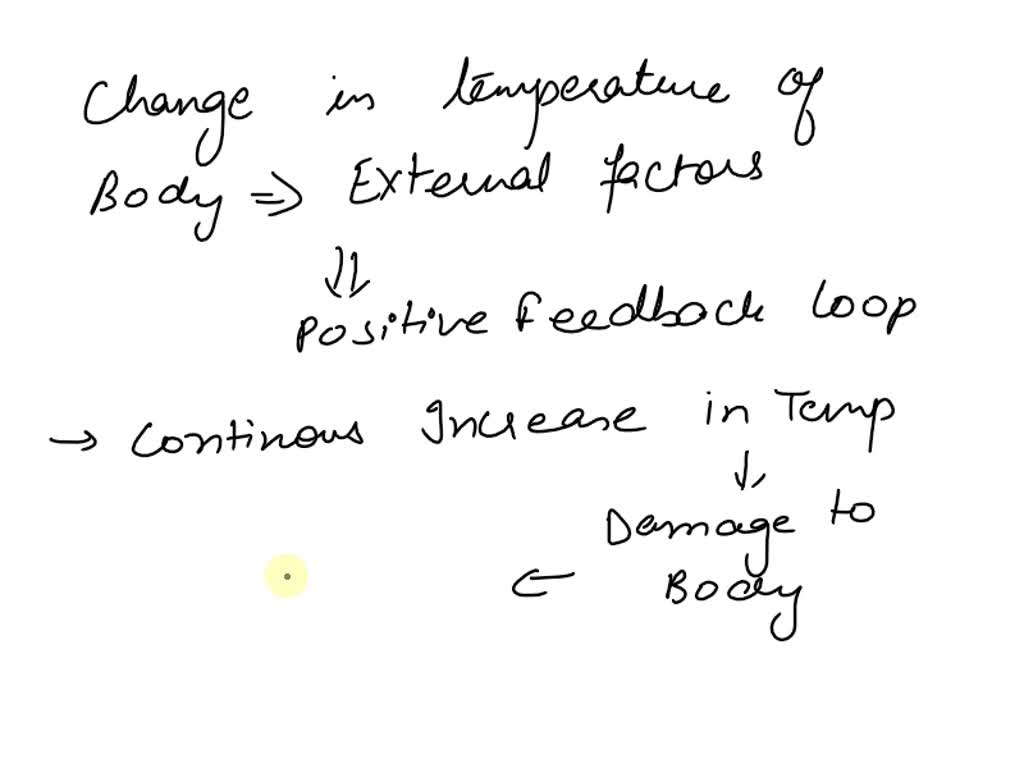 Change in temperature of
Body ⇒ External factors
⇓
Positive Feedback Loop
→ Continous Increase in Temp
↓
Damage to
← Body